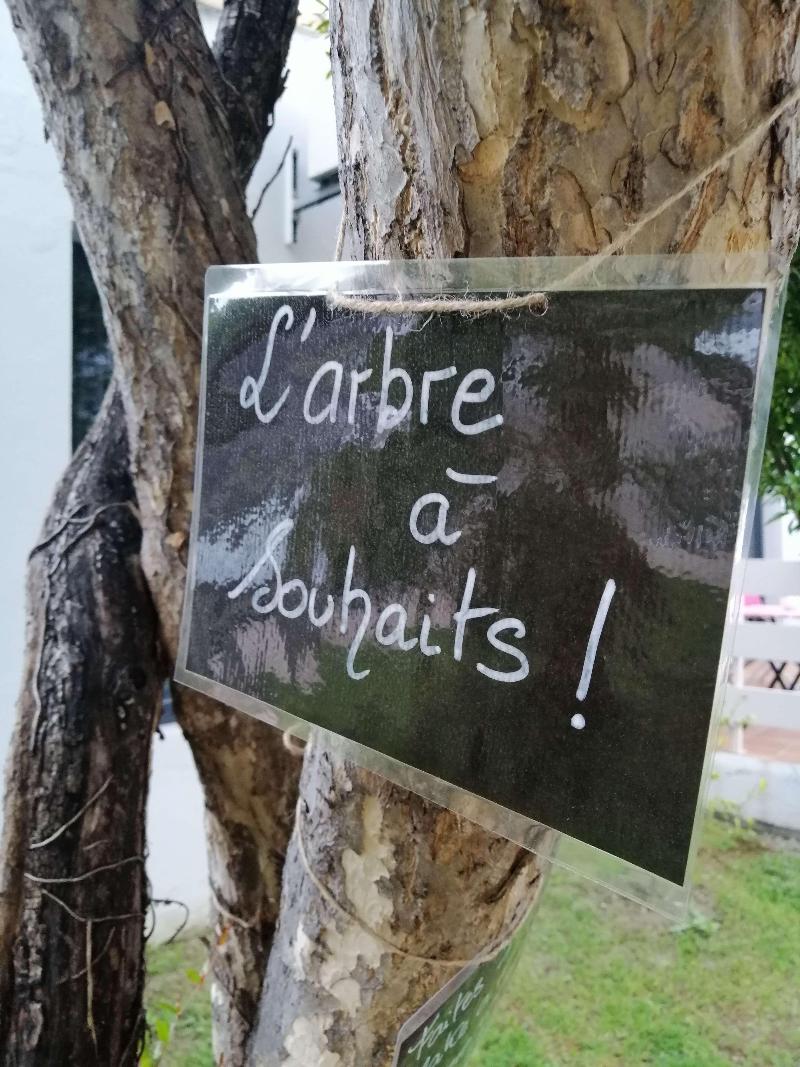 L'arbre
à
souhaits !
faites